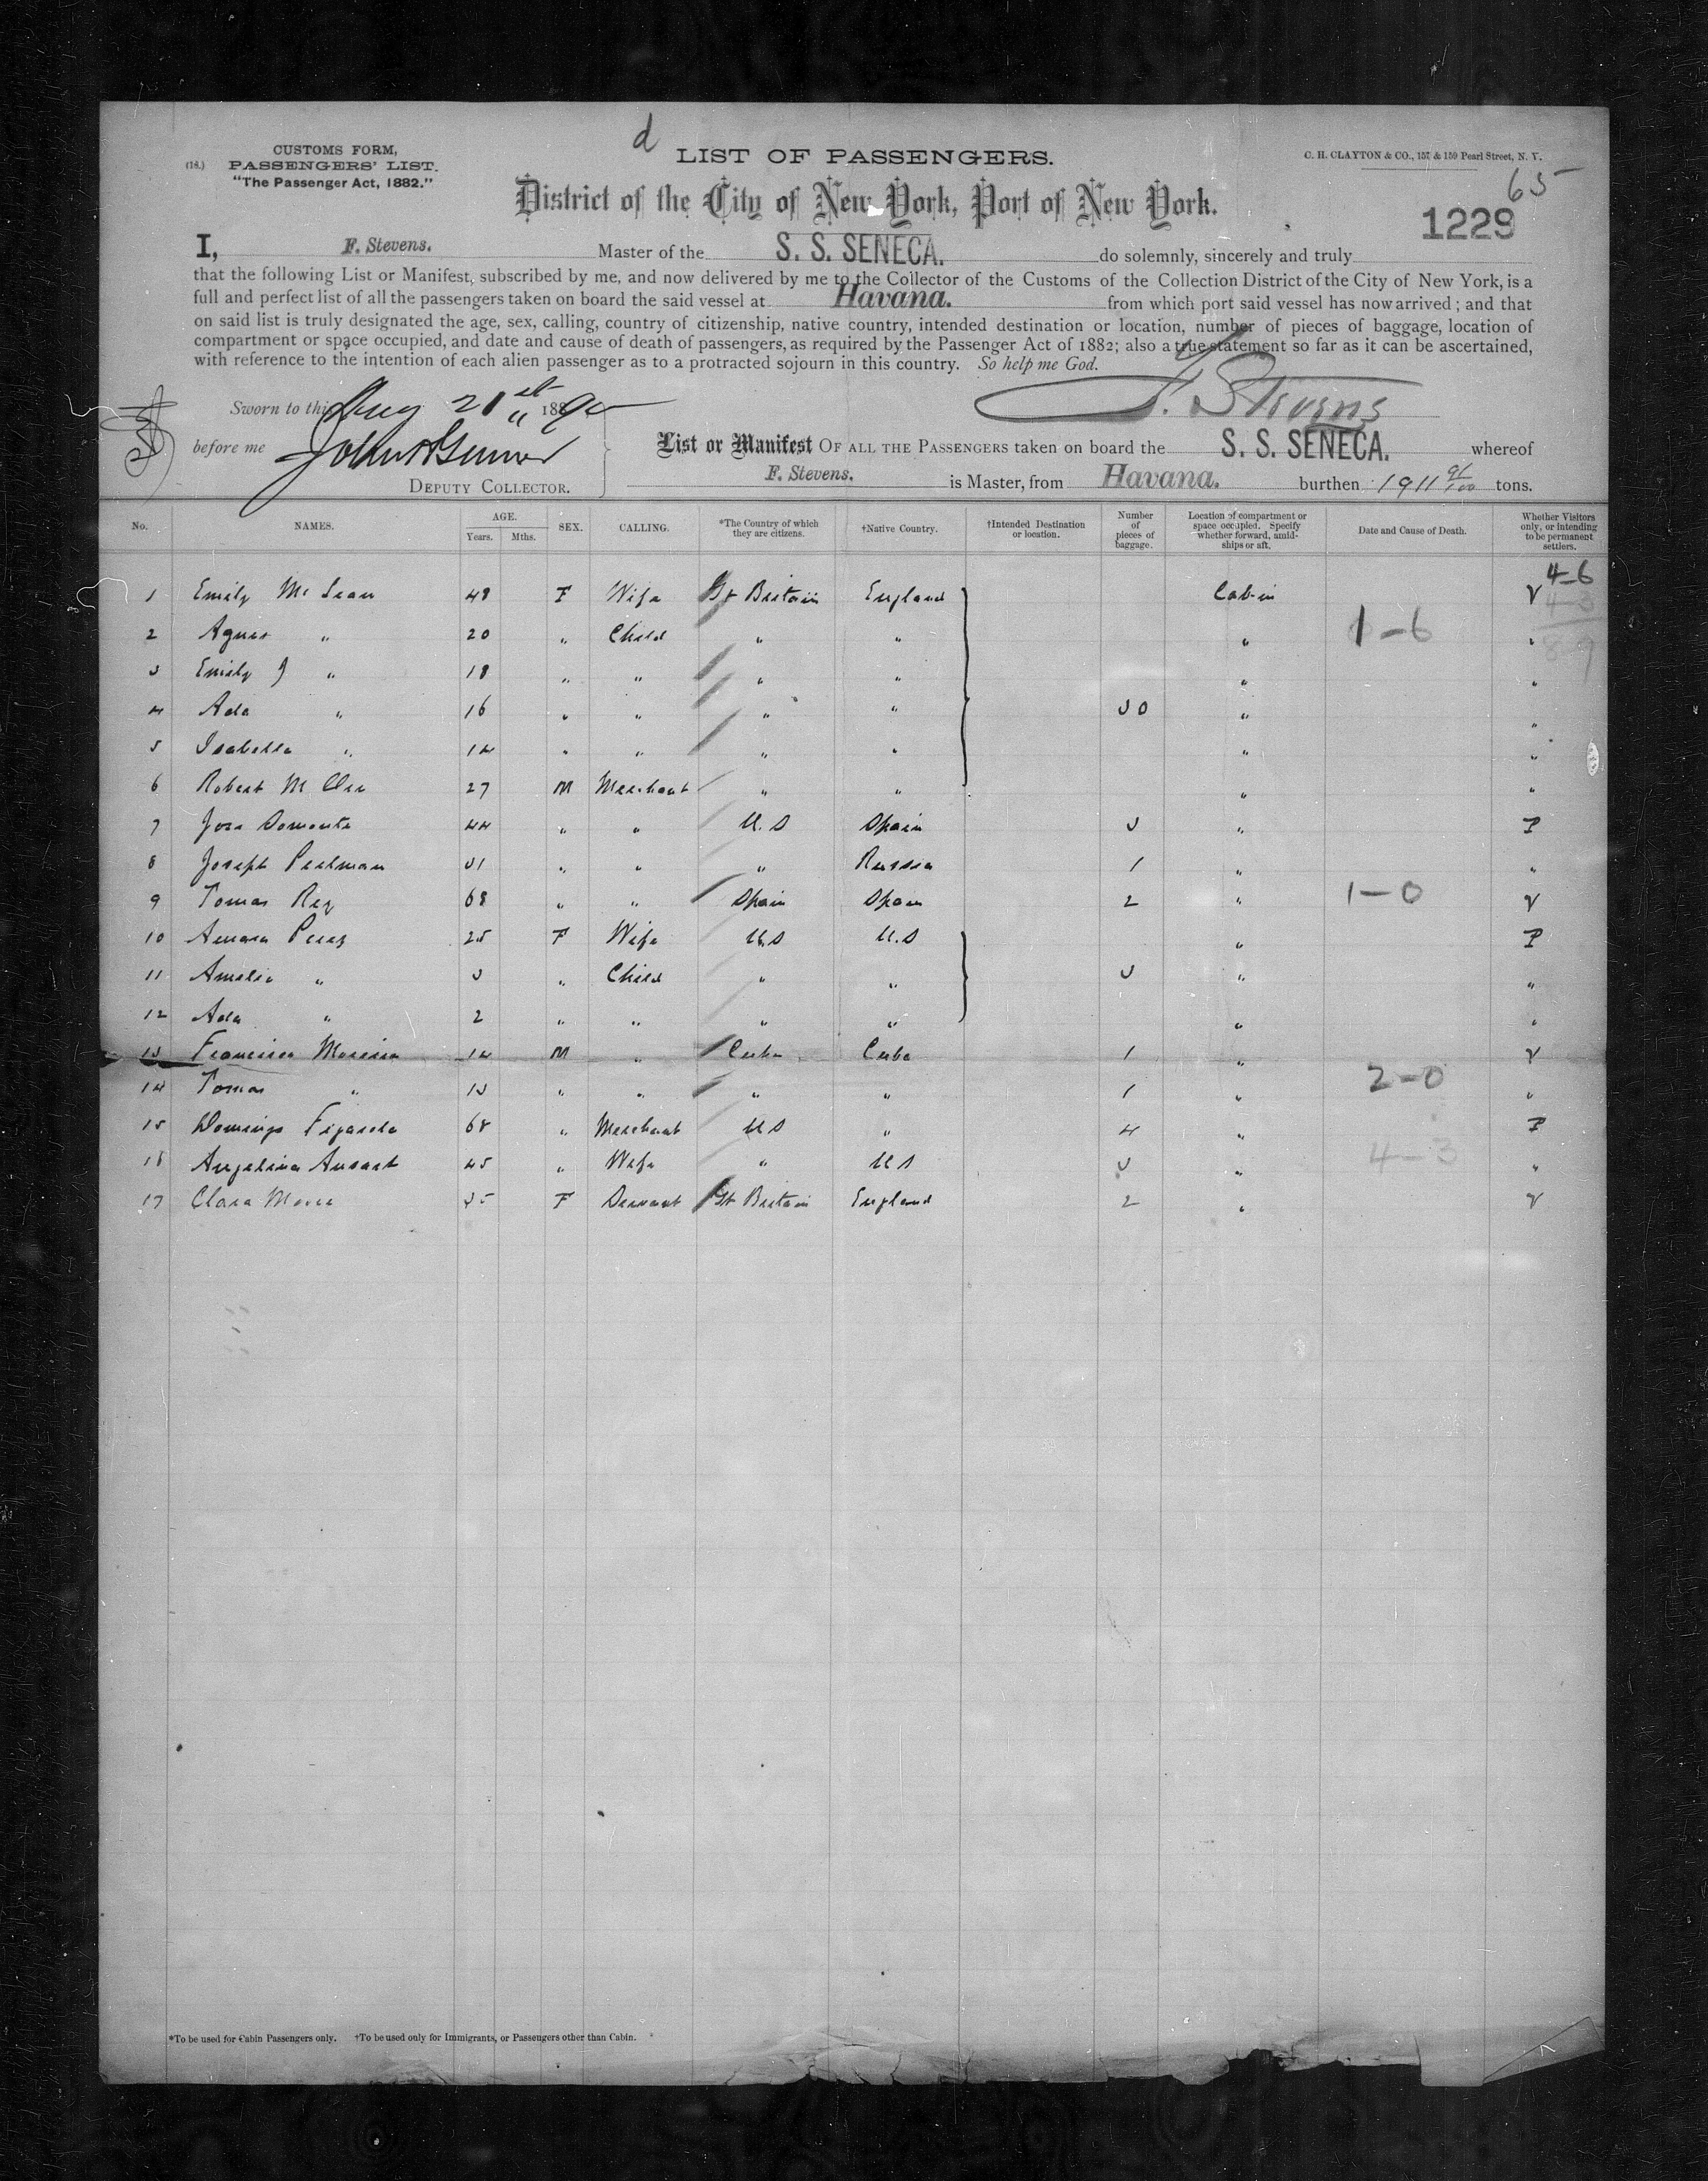 d
CUSTOMS FORM,
(18.) PASSENGERS' LIST.
"The Passenger Act, 1882."
LIST OF PASSENGERS.
C. H. CLAYTON & CO., 157 & 159 Pearl Street, N. Y.
District of the City of New York, Port of New York.
65
1229
I, F. Stevens. Master of the S. S. SENECA. do solemnly, sincerely and truly
that the following List or Manifest, subscribed by me, and now delivered by me to the Collector of the Customs of the Collection District of the City of New York, is a
full and perfect list of all the passengers taken on board the said vessel at Havana. from which port said vessel has now arrived; and that
on said list is truly designated the age, sex, calling, country of citizenship, native country, intended destination or location, number of pieces of baggage, location of
compartment or space occupied, and date and cause of death of passengers, as required by the Passenger Act of 1882; also a true statement so far as it can be ascertained,
with reference to the intention of each alien passenger as to a protracted sojourn in this country. So help me God.
Sworn to this Aug 21st 1890
F. Stevens
before me John
DEPUTY COLLECTOR.
List or Manifest OF ALL THE PASSENGERS taken on board the S. S. SENECA. whereof
F. Stevens. is Master, from Havana. burthen 1911 91/100 tons.
No. NAMES. AGE. Years. Mths. SEX. CALLING. *The Country of which they are citizens. †Native Country. †Intended Destination or location. Number of pieces of baggage. Location of compartment or space occupied. Specify whether forward, amidships or aft. Date and Cause of Death. Whether Visitors only, or intending to be permanent settlers.
4-6
1 Emily McLean 48 F Wife Gt Britain England Cabin V
2 Agnes " 20 " Child " " " 1-6 "
3 Emily J " 18 " " " " " "
4 Ada " 16 " " " " 30 " "
5 Isabella " 14 " " " " " "
6 Robert M Orr 27 M Merchant " " " "
7 Jose 44 " " U.S Spain 3 " P
8 Joseph Perlman 31 " " " Russia 1 " "
9 Tomas Rey 68 " " Spain Spain 2 " 1-0 V
10 Perez 25 F Wife U.S U.S " P
11 Amelia " 3 " Child " " 3 " "
12 Ada " 2 " " " " " "
13 Francisco Moreira 14 M " Cuba Cuba 1 " V
14 Tomas " 13 " " " " 1 " 2-0 "
15 Domingo Figarola 68 " Merchant U S " 4 " P
16 Angelina 45 " Wife " U S 3 " 4-3 "
17 Clara 35 F Servant Gt Britain England 2 " V
*To be used for Cabin Passengers only. †To be used only for Immigrants, or Passengers other than Cabin.